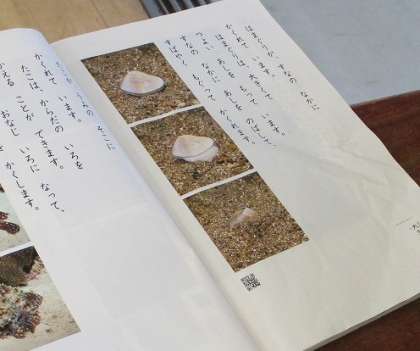 はまぐりが、すなの なかに
かくれて います。
はまぐりは、大きくて
つよい あしを もって います。
すなの なかに あしを のばして、
すばやく もぐって かくれます。
うみの そこに
かくれて います。
たこは、からだの いろを
かえる ことが できます。
おなじ いろに なって、
を かくします。